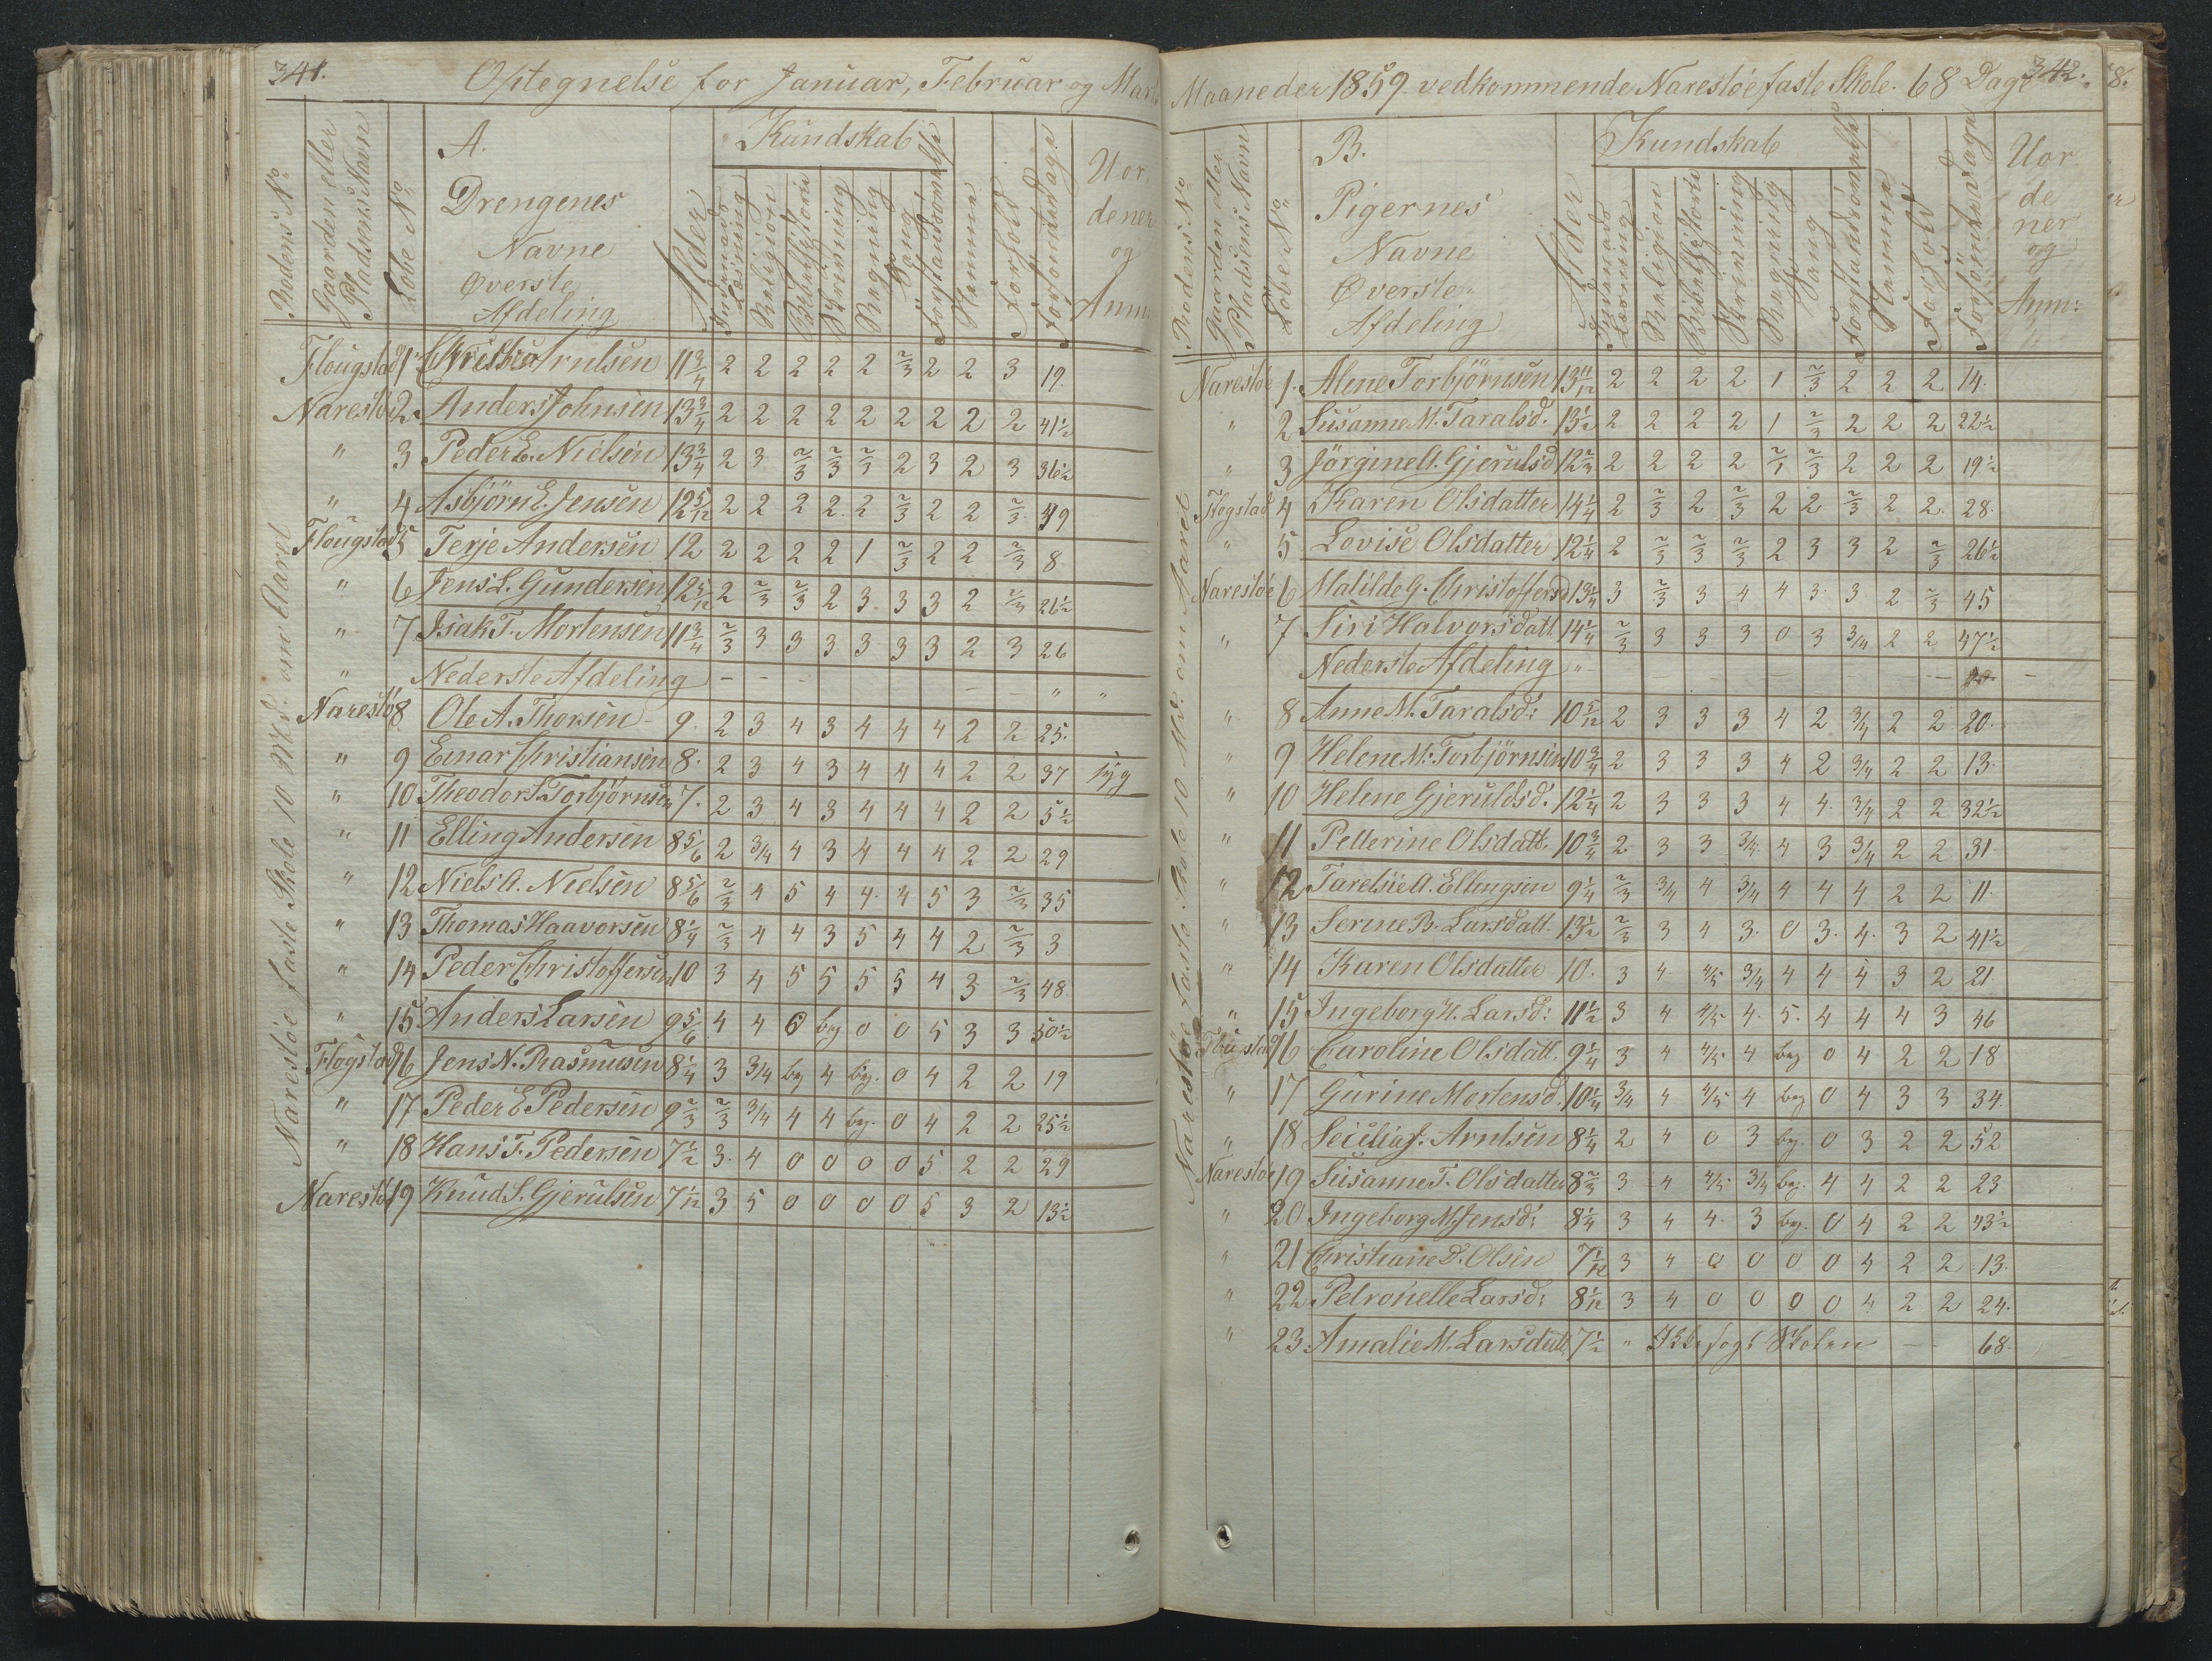 341.
Optegnelse for Januar, Februar og Marts
Rodens No
Gaarden eller Pladsens Navn
Løbe No
A.
Drengenes
Navne
Øverste
Afdeling
Alder
Kundskab
Religion
Bibelhistorie
Skrivning
Regning
Sang
Forstandsømmelse
Nemme
Forhold
Forsømte Dage
Uor-
dener
og
Anm:
Narestøe faste Skole 10 Md. om Aaret
Flougstad 1 Arntsen 11 3/4 2 2 2 2 2 2/3 2 2 3 19
Narestø 2 Anders Johnsen 13 3/4 2 2 2 2 2 2 2 2 2 41 1/2
" 3 Peder E. Nielsen 13 3/4 2 3 2/3 2/3 2/3 2 3 2 3 36 1/2
" 4 Asbjörn E. Jensen 12 5/12 2 2 2 2 2 2/3 2 2 2/3 49
Flougstad 5 Terje Andersen 12 2 2 2 2 1 2/3 2 2 2/3 8
" 6 Jens L. Gundersen 12 5/12 2 2/3 2/3 2 3 3 3 2 2/3 26 1/2
" 7 Isak T. Mortensen 11 3/4 2/3 3 3 3 3 3 3 2 3 26
" Nederste Afdeling - - - - - " "
Narestø 8 Ole A. Thorsen 9. 2 3 4 3 4 4 4 2 2 25.
" 9 Einar Christiansen 8. 2 3 4 3 4 4 4 2 2 37 syg
" 10 Theodor S. Torbjörnsen 7. 2 3 4 3 4 4 4 2 2 5 1/2
" 11 Elling Andersen 8 5/6 2 3/4 4 3 4 4 4 2 2 29
" 12 Niels A. Nielsen 8 5/6 2/3 4 5 4 4. 4 5 3 2/3 35
" 13 Thomas Haavorsen 8 1/4 2/3 4 4 3 5 4 4 2 2/3 3
" 14 Peder Christoffersen 10 3 4 5 5 5 5 4 3 2/3 48
" 15 Anders Larsen 9 5/6 4 4 0 beg 0 0 5 3 3 50 1/2
Flogstad 16 Jens N. Rasmusen 8 1/4 3 3/4 beg 4 beg. 0 4 2 2 19
" 17 Peder E Pedersen 9 2/3 2/3 3/4 4 4 beg. 0 4 2 2 25 1/2
" 18 Hans T. Pedersen 7 1/2 3. 4 0 0 0 0 5 2 2 29
Narestø 19 Knud S. Gjerulsen 7 1/12 3 5 0 0 0 0 5 3 2 13 1/2
342.
Maaneder 1859 vedkommende Narestøe faste Skole. 68 Dage
Rodens No
Gaarden eller Pladsens Navn
Løbe No
B.
Pigernes
Navne
Øverste
Afdeling
Alder
Kundskab
Religion
Bibelhistorie
Skrivning
Regning
Sang
Nemme
Forhold
Forsømte Dage
Uor
de
ner
og
Anm:
Narestøe faste Skole 10 Md. om Aaret
Narestøe 1. Aline Torbjörnsen 13 11/12 2 2 2 2 1 2/3 2 2 2 14.
" 2 Susanne M. Taralsd. 13 1/2 2 2 2 2 1 2/3 2 2 2 22 1/2
" 3 Jörgine A. Gjerulsd 12 2/3 2 2 2 2 2/1 2/3 2 2 2 19 1/2
Flogstad 4 Karen Olsdatter 14 1/4 2 2/3 2 2/3 2 2 2/3 2 2. 28.
" 5 Lovise Olsdatter 12 1/4 2 2/3 2/3 2/3 2 3 3 2 2/3 26 1/2
Narestøe 6 Matilde G. Christoffersd 13 3/4 3 2/3 3 4 4 3 3 2 2/3 45
" 7 Siri Halvorsdatt 14 1/4 2/3 3 3 3 0 3 3/4 2 2 47 1/2
Nederste Afdeling " -
" 8 Anne M. Taralsd: 10 5/12 2 3 3 3 4 2 3/4 2 2 20.
" 9 Helene M. Torbjörnsen 10 3/4 2 3 3 3 4 2 3/4 2 2 13.
" 10 Helene Gjeruldsd. 12 1/4 2 3 3 3 4 4. 3/4 2 2 32 1/2
" 11 Petterine Olsdatt. 10 3/4 2 3 3 3/4. 4 3 3/4 2 2 31.
" 12 Tarelsie A. Ellingsen 9 1/4 2/3 3/4 4 3/4 4 4 4 2 2 11.
" 13 Serine B. Larsdatt. 13 1/2 2/3 3 4 3. 0 3. 4. 3 2 41 1/2
" 14 Karen Olsdatter 10. 3 4. 4/5 3/4 4 4 4 3 2 21.
" 15 Ingeborg H. Larsd: 11 1/2 3 4 4/5 4. 5. 4 4 4 3 46
Flougstad 16 Caroline Olsdatt. 9 1/4 3 4 4/5 4 beg 0 4 2 2 18
" 17 Gurine Mortensd. 10 1/4 3/4 4 4/5 4 beg 0 4 3 3 34.
" 18 Seicilia J. Arntsen 8 1/4 2 4 0 3 beg. 0 3 2 2 52
Narestøe 19 Susanne T. Olsdatter 8 2/3 3 4 4/5 3/4 beg. 4 4 2 2 23
" 20 Ingeborg M. Jensd: 8 1/4 3 4 4. 3 beg. 0 4 2 2 43 1/2
" 21 Christiane D. Olsen 7 1/12 3 4 0 0 0 0 4 2 2 13.
" 22 Petronelle Larsd: 8 1/12 3 4 0 0 0 0 4 2 2 24.
" 23. Amalie M. Larsdatt. 7 1/2 " Ikke søgt Skolen - - 68.